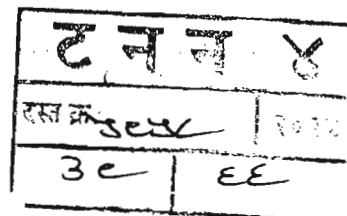 ट न न ४
दस्त क्र. ७८९४ २०१४
३९ ६६